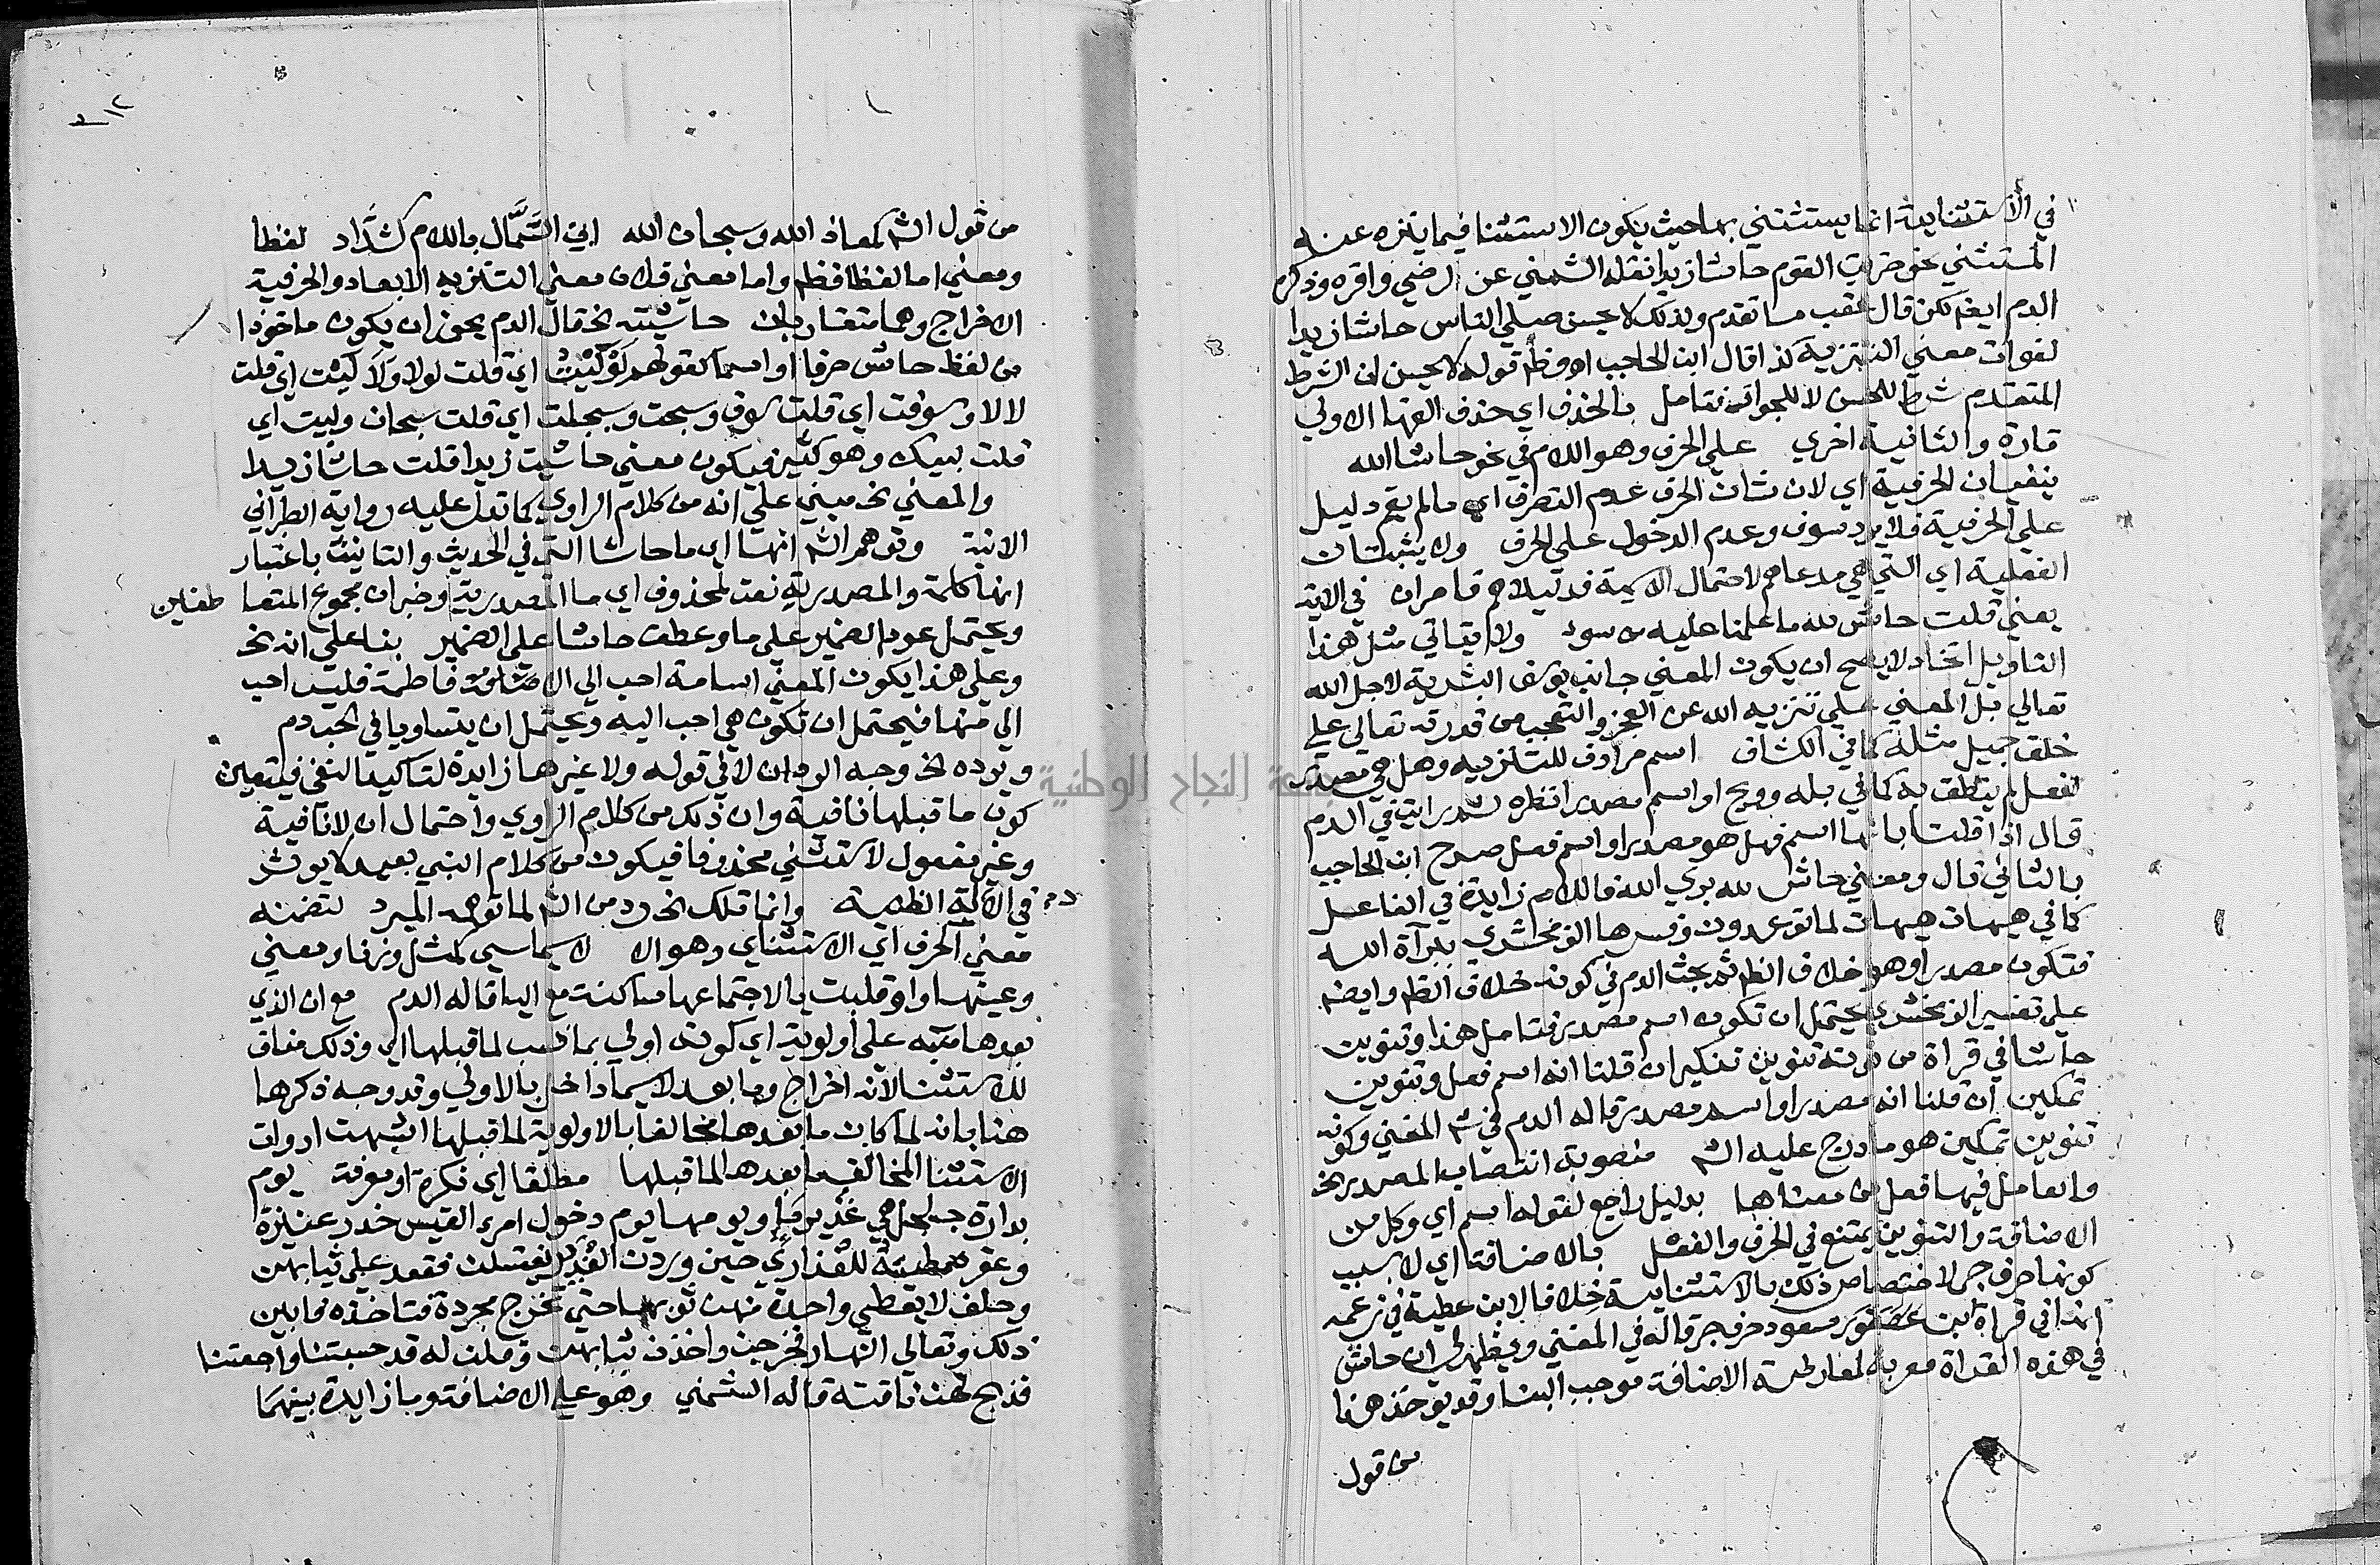 في الاستثنايية انما يستثني بها حيث يكون الاستثنا فيما ينزه عنه
المستثني نحو ضربت القوم حاشا زيدا نقله الشمني عن الرضي واقره وذكره
الدم ايضا لكن قال عقب ما تقدم ولذلك لا يحسن صلي الناس حاشا زيدا
لفوات معني التنزيه كذا قال ابن الحاجب اه وظ قوله لا يحسن ان الشرط
المتقدم شرط للحسن لا للجواز فتامل بالحذف اي حذف الفها الاولي
تارة والثانية اخري علي الحرف وهو اللام في نحو حاشا الله
ينفيان الحرفية اي لان شان الحرف عدم التصرف اي ما لم يقم دليل
علي الحرفية فلا يرد سوف وعدم الدخول علي الحرف ولا يثبتان
الفعلية اي التي هي مدعاهم لاحتمال الاسمية فدليلاهم قاصران في الاية
يعني قلت حاش لله ما علمنا عليه من سوء ولا يتاتي مثل هذا
التاويل اتحاد لا يصح ان يكون المعني جانب يوسف البشرية لاجل الله
تعالي بل المعني علي تنزيه الله عن العجز والتعجب من قدرته تعالي علي
خلق جميل مثله كما في الكشاف اسم مرادف للتنزيه وهل هي مصدر
لفعل لم ينطق به كما في بله وويح او اسم مصدر انظره ثم رايت في الدم
قال اذا قلت بانها اسم فهل هو مصدر او اسم فعل صرح ابن الحاجب
بالثاني قال ومعني حاش لله بري الله فاللام زايدة في الفاعل
كما في هيهات هيهات لما توعدون وفسرها الزمخشري ببراة الله
فتكون مصدرا وهو خلاف الظ ثم بحث الدم في كونه خلاف الظ وايضا
علي تفسير الزمخشري يحتمل ان تكون اسم مصدر فتامل هذا وتنوين
حاشا في قراة من نونه تنوين تنكير ان قلنا انه اسم فعل وتنوين
تمكين ان قلنا انه مصدر او اسم مصدر قاله الدم في ش المغني وكونه
تنوين تمكين هو ما درج عليه الش منصوبة انتصاب المصدر الخ
والعامل فيها فعل من معناها بدليل راجع لقوله اسم اي وكل من
الاضافة والتنوين يمتنع في الحرف والفعل بالاضافة اي لا بسبب
كونها حرف جر لاختصاص ذلك بالاستثنايية خلافا لابن عطية في زعمه
انها في قراة ابن مسعود حرف جر قاله في المغني ويظهر لي ان حاش
في هذه القراة معربة لمعارضة الاضافة موجب البنا وقد يوخذ هذا
من قول
من قول الش كمعاذ الله وسبحان الله ابي السَّمَّال باللام كشدَّاد لفظا
ومعني اما لفظا فظ واما معني فلان معني التنزيه الابعاد والحرفية
الاخراج وهما متقاربان حاشيته الخ قال الدم يجوز ان يكون ماخوذا
من لفظ حاش حرفا او اسما كقولهم لَوْلَيْتُ اي قلت لولا ولا ليت اي قلت
لا لا وسوفت اي قلت سوف وسبحت وسبحلت اي قلت سبحان ولبيت اي
قلت لبيك وهو كثير فيكون معني حاشيت زيدا قلت حاشا زيدا
والمعني الخ مبني علي انه من كلام الراوي كما تدل عليه رواية الطبراني
الاتية وتوهم الش انها اي ما حاشا التي في الحديث والتانيث باعتبار
انها كلمة والمصدرية نعت لمحذوف اي ما المصدرية وخبر ان مجموع المتعاطفين
ويحتمل عود الضمير علي ما وعطف حاشا علي الضمير بنا علي انه الخ
وعلي هذا يكون المعني اسامة احب الي الا فاطمة فليس احب
الي منها فيحتمل ان تكون هي احب اليه ويحتمل ان يتساويا في الحب دم
ويرده الخ وجه الرد ان لا في قوله ولا غيرها زايدة لتاكيد النفي فيتعين
كون ما قبلها نافية وان ذلك من كلام الراوي واحتمال ان لا نافية
وغير مفعول لاستثني محذوفا فيكون من كلام النبي بعيد لا يوثر
في الادلة الظنية وانما قلت الخ رد من الش لما توهمه المبرد لتضمنه
معني الحرف اي الاستثناي وهو الا لا سيما سي كمثل وزنا ومعني
وعينها واو قلبت يا لاجتماعها ساكنة مع اليا قاله الدم مع ان الذي
بعدها منبه علي اولويته اي كونه اولي بما نسب لما قبلها اي وذلك مناف
للاستثنا لانه اخراج وما بعد لا سيما داخل بالاولي وقد وجه ذكرها
هنا بانه لما كان ما بعدها مخالفا بالاولوية لما قبلها اشبهت ادوات
الاستثنا المخالف ما بعدها لما قبلها مطلقا اي نكرة او معرفة يوم
بدارة جلجل هي غدير ماء ويومها يوم دخول امرء القيس خدر عنيزة
وعقر مطيته للعذاري حين وردن الغدير يغتسلن فقعد علي ثيابهن
وحلف لا يعطي واحدة منهن ثوبها حتي تخرج مجردة فتاخذه فابين
ذلك وتعالي النهار فخرجن واخذن ثيابهن وقلن له قد حبستنا واجعتنا
فذبح لهن ناقته قاله الشمني وهو علي الاضافة وما زايدة بينهما
جامعة النجاح الوطنية